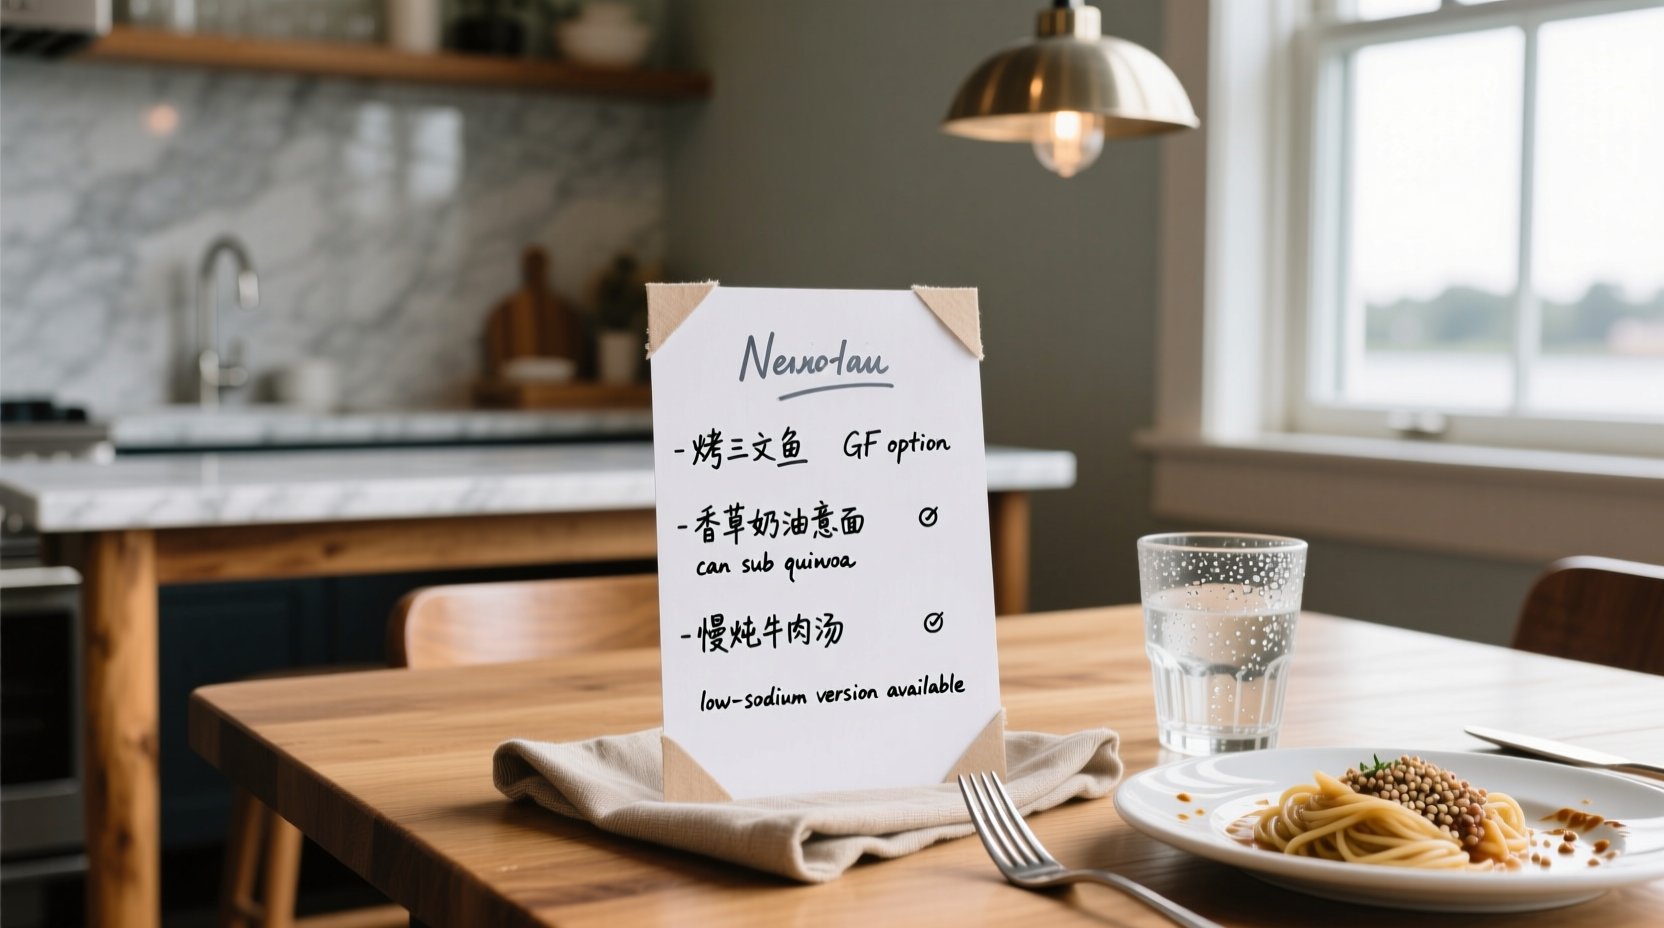 - 烤三文鱼 GF option
- 香草奶油意面
can sub quinoa
- 慢炖牛肉汤
low-sodium version available